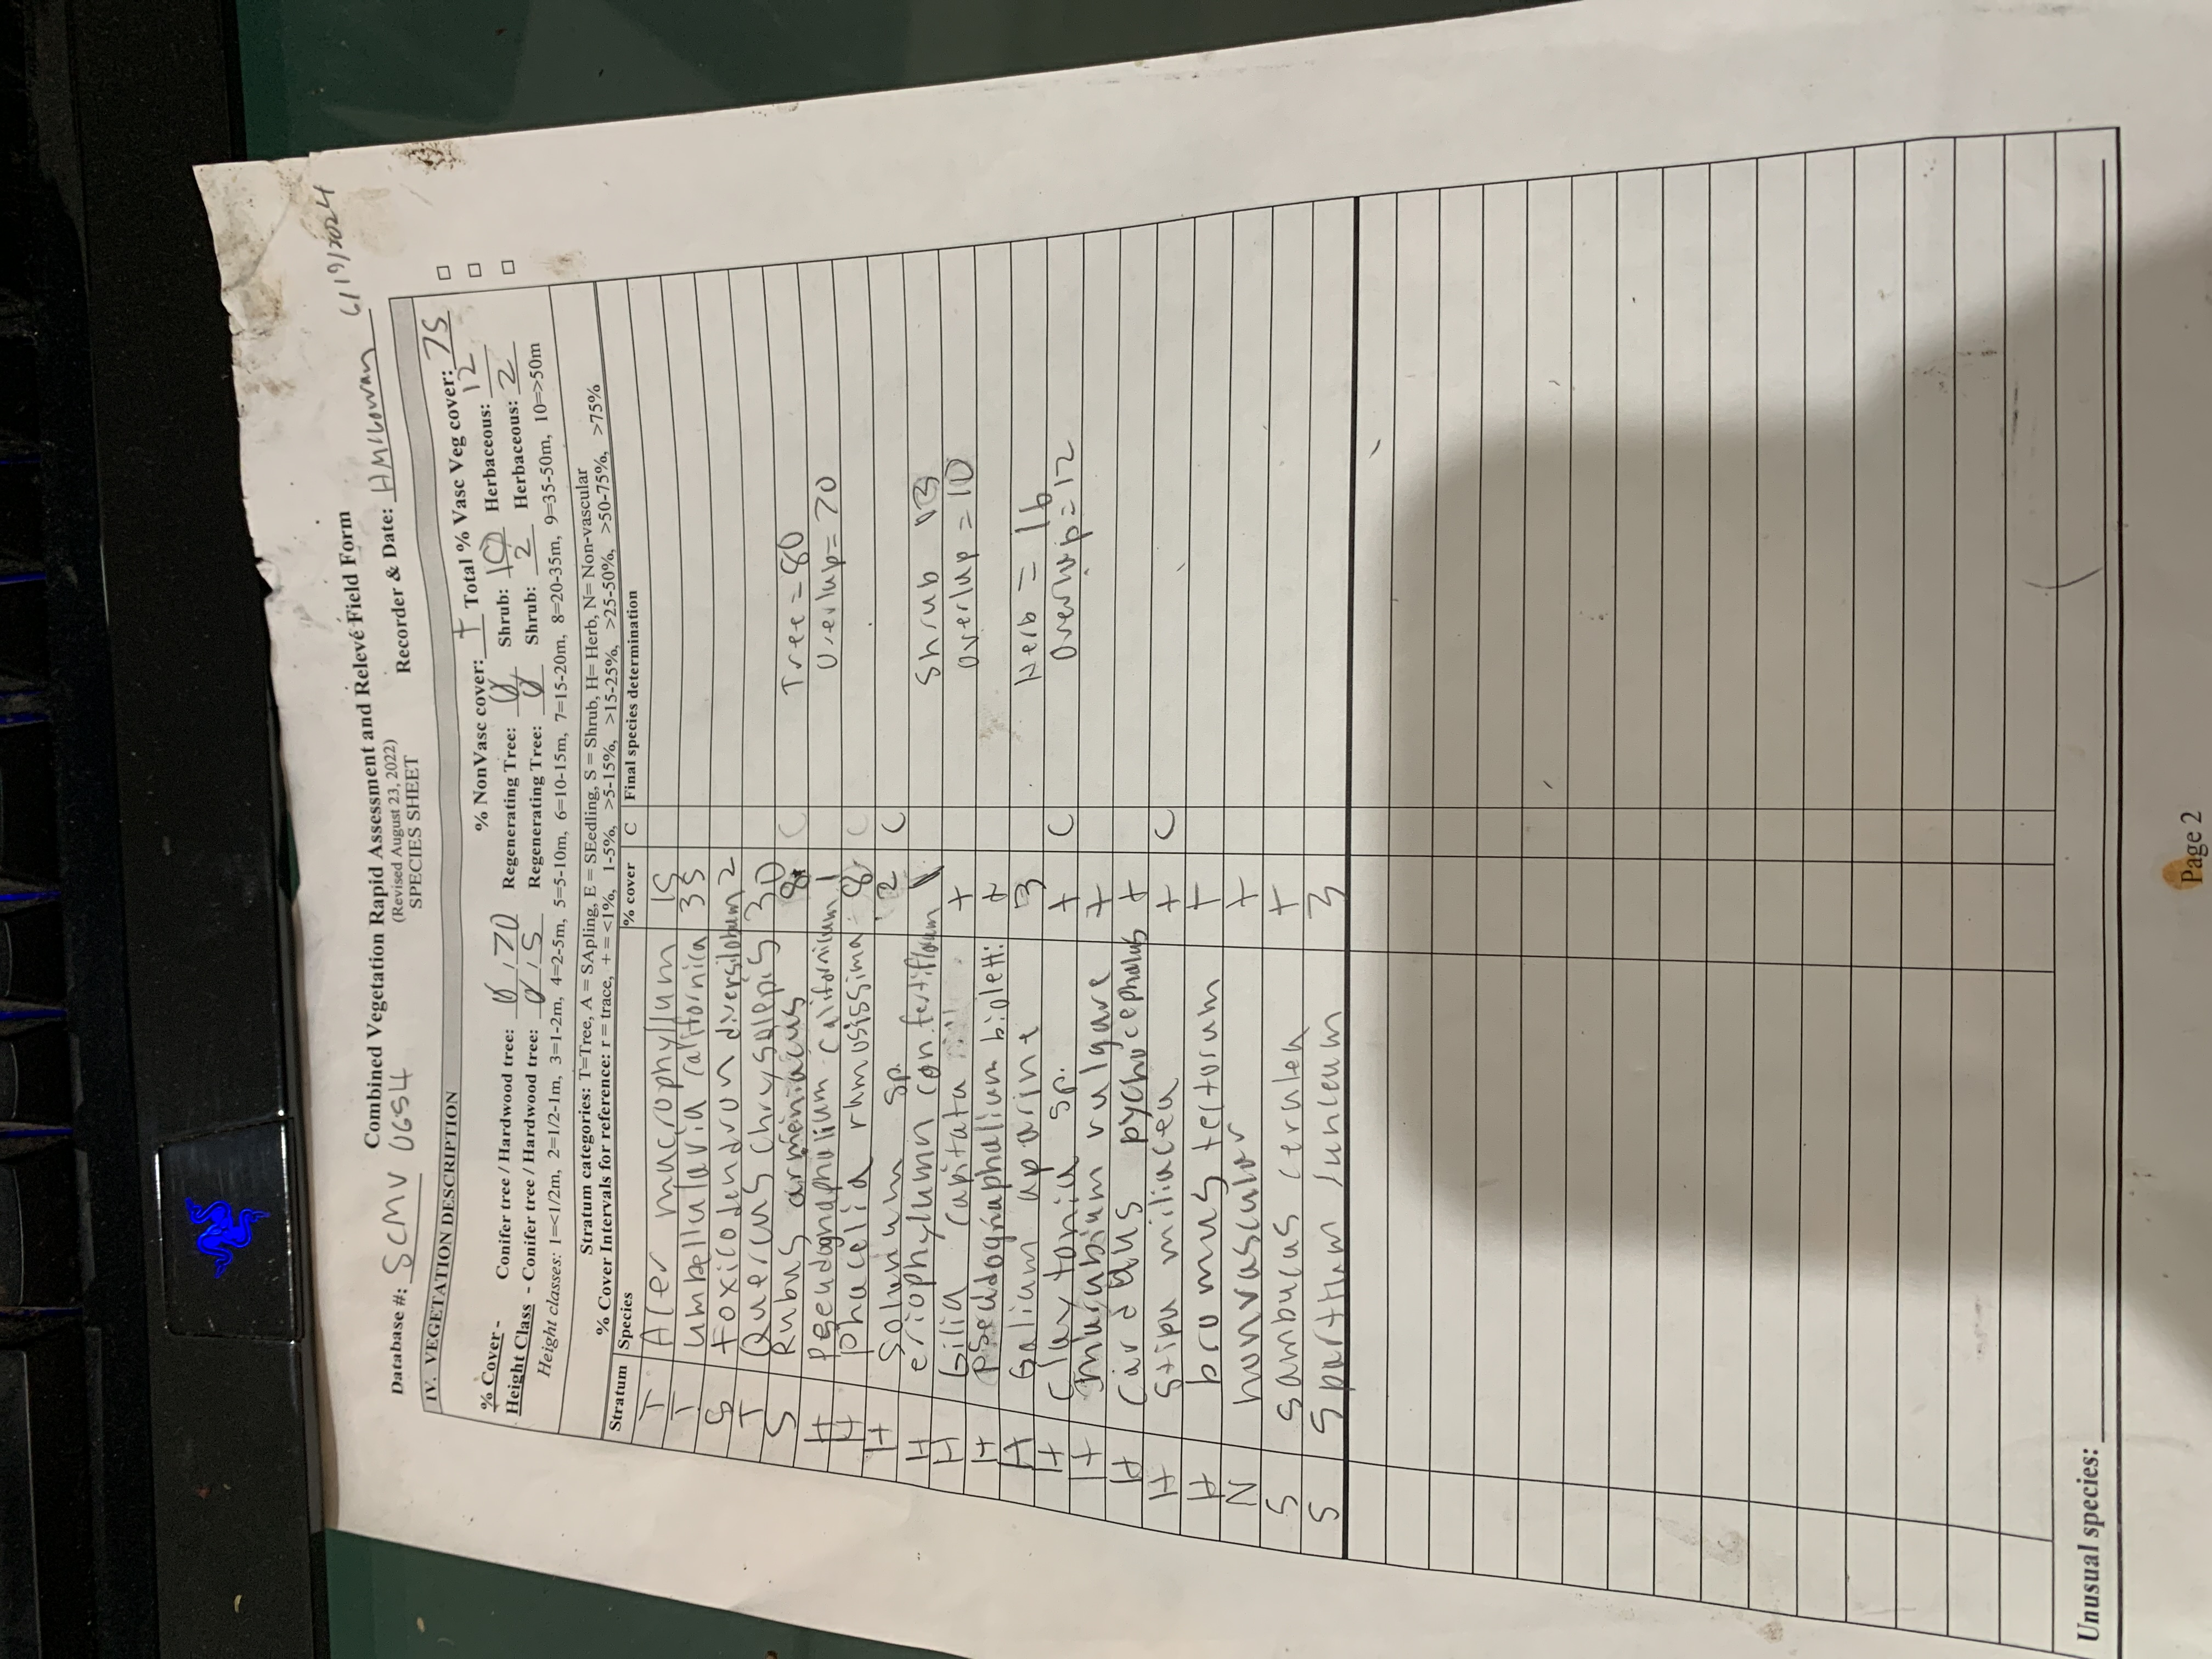 Combined Vegetation Rapid Assessment and Relevé Field Form
(Revised August 23, 2022)
SPECIES SHEET
Database #: SCMV 0654 Recorder & Date: 6/19/2024
IV. VEGETATION DESCRIPTION
% NonVasc cover: + Total % Vasc Veg cover: 75
% Cover - Conifer tree / Hardwood tree: 0 / 70 Regenerating Tree: 0 Shrub: 10 Herbaceous: 12
Height Class - Conifer tree / Hardwood tree: 0 / 5 Regenerating Tree: 0 Shrub: 2 Herbaceous: 2
Height classes: 1=<1/2m, 2=1/2-1m, 3=1-2m, 4=2-5m, 5=5-10m, 6=10-15m, 7=15-20m, 8=20-35m, 9=35-50m, 10=>50m
Stratum categories: T=Tree, A = SApling, E = SEedling, S = Shrub, H= Herb, N= Non-vascular
% Cover Intervals for reference: r = trace, + = <1%, 1-5%, >5-15%, >15-25%, >25-50%, >50-75%, >75%
Stratum Species % cover C Final species determination
T Acer macrophyllum 15
T umbellularia californica 35
S toxicodendron diversilobum 2
T Quercus chrysolepis 30
S Rubus armeniacus 8 C Tree = 80
H Pseudognaphalium californicum 1 Overlap = 70
H phacelia ramosissima 8 C
H Solanum sp. 2 C
H eriophyllumn confertiflorum 1 Shrub 13
H Gilia capitata + overlap = 10
H pseudognaphalium bioletti +
H Galium aparine 3 Herb = 16
H Claytonia sp. + C Overlap = 12
H marrubium vulgare +
H Carduus pycnocephalus +
H Stipa miliacea + C
H bromus tectorum +
N nonvascular +
S Sambucus cerulea +
S Spartium junceum 3
Unusual species:
Page 2